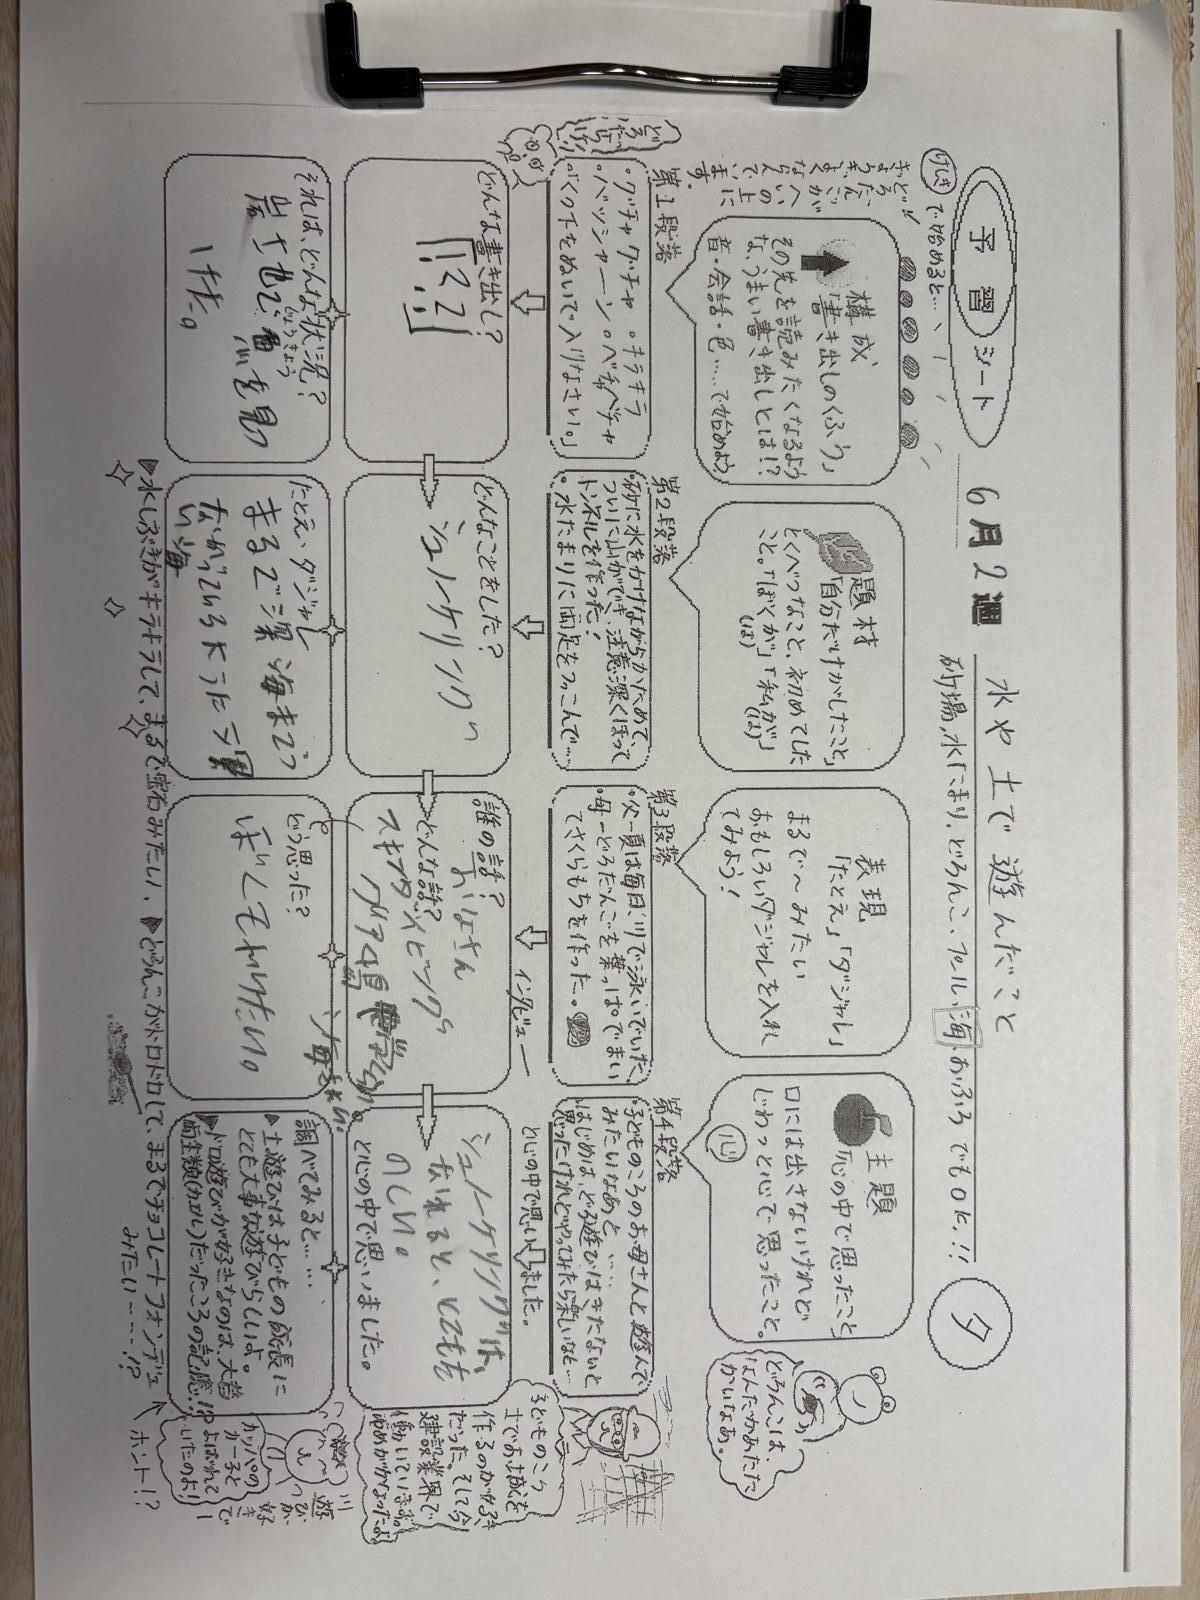 予習シート
6月2週
水や土で遊んだこと
砂場、水たまり、どろんこ、プール、海、おふろでもOK!!
夕
けしきで始めると…、
きょうだいが
なかよく
ならんで
いの上に
います。
構成
「書き出しのくふう」
その先を読みたくなるよう
な、うまい書き出しとは!?
音・会話・色……で始めよう
題材
「自分だけがしたこと」
とくべつなこと、初めてした
こと。「ぼくが」「私が」
(は) (は)
表現
「たとえ」「ダジャレ」
まるで〜みたい
おもしろいダジャレを入れ
てみよう!
主題
「心の中で思ったこと」
口には出さないけれど
じわっと心で思ったこと。
心
どろんこは、
なんだかあたた
かいなあ。
第1段落
・グチャグチャ ・キラキラ
・バッシャーン。ベチャベチャ
・「くつ下をぬいで入りなさい。」
第2段落
・砂に水をかけながらかためて、
ついに山ができ、注意深くほって
トンネルを作った!
・水たまりに両足をつっこんで…
第3段落
・父—夏は毎日、川で泳いでいた。
・母—どろだんごを葉っぱでまい
てさくらもちを作った。
第4段落
・子どものころのお母さんと遊んで
みたいなあと……
はじめは、どろ遊びはきたないと
思ったけれどやってみたら楽しいなと…
どんな書き出し?
どんなことをした?
シュノーケリング
インタビュー
誰の話?
おかあさん
どんな話?
スキューバダイビング
と心の中で思いました。
シュノーケリングは、
なれると、とても
たのしい。
と心の中で思いました。
子どものころ
土でお城を
作るのが好き
だった。そして今
建設業界で
働いています。
それは、どんな状況?
じょうきょう
見
た。
たとえ、ダジャレ
まるで深海まで
どう思った?
ぼくもやりたい。
調べてみると……
▶土遊びは子どもの成長に
とても大事な遊びらしいよ。
▶ドロ遊びが好きなのは、大昔
両生類(カエル)だったころの記憶!?
川遊びが好きで
カッパの
カーと
よばれて
いたのよ!
▶水しぶきがキラキラして、まるで宝石みたい、▶どろんこがドロドロして、まるでチョコレートフォンデュ
みたい……!?
ホント!?